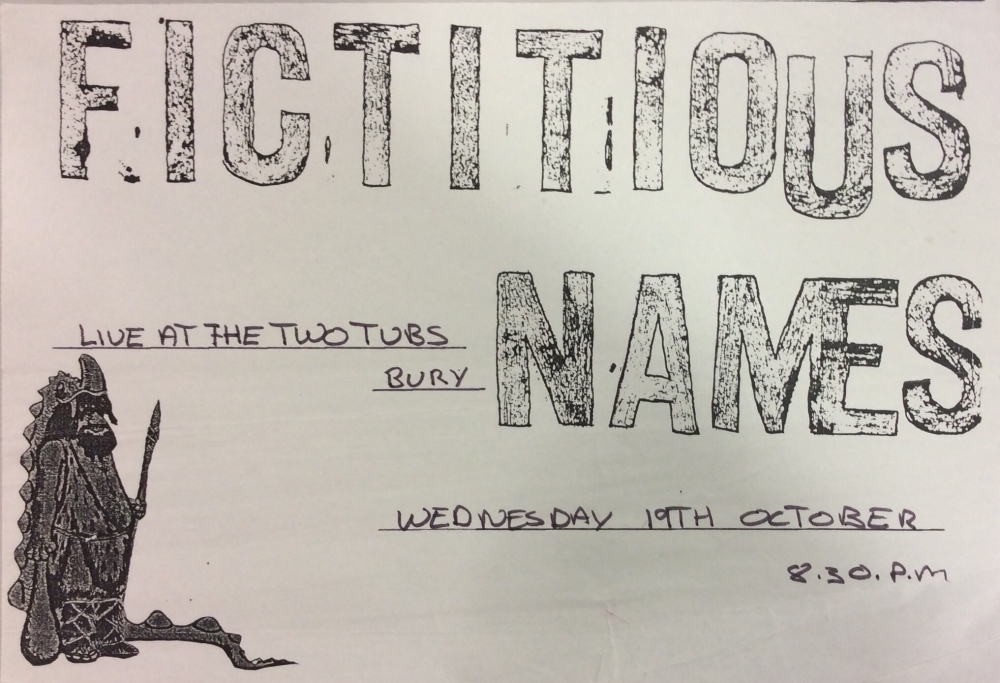 FICTITIOUS
NAMES
LIVE AT THE TWO TUBS
BURY
WEDNESDAY 19TH OCTOBER
8.30.P.M